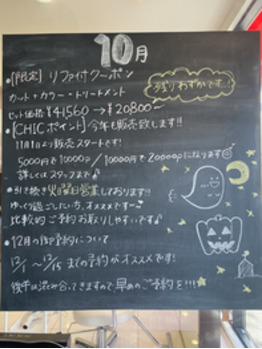 10月
•【限定】リファイ付クーポン
残りわずかです!!
カット+カラー+トリートメント
セット価格¥41560→¥20800~
•【CHICポイント】今年も販売致します!!
11月1日より販売スタートです!
5000円で10000P/10000円で20000Pになります
詳しくはスタッフまで♪
•引き続き火曜日営業しております!!
ゆっくり過ごしたい方、オススメです~
比較的ご予約お取りしやすいです♪
•12月の御予約について
12/1 ~ 12/15 までの予約がオススメです!
後半は混み合ってきますので早めのご予約を!!!